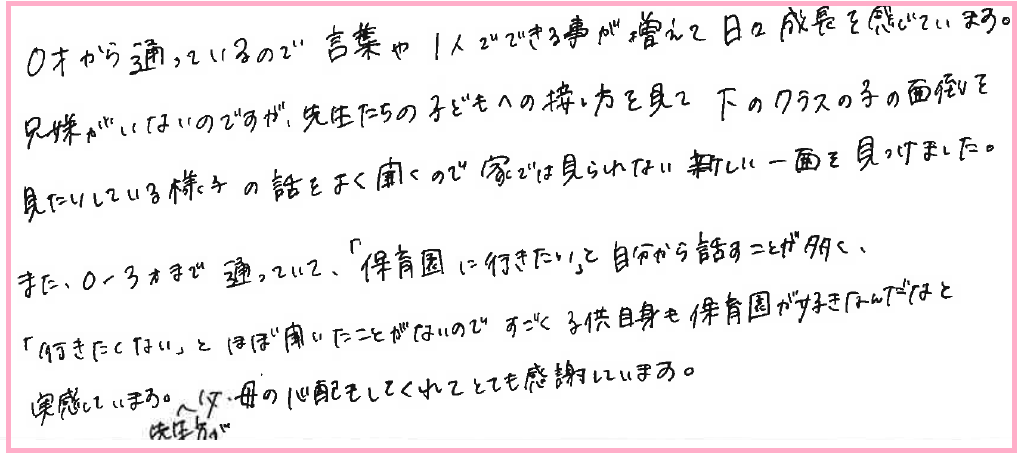 0才から通っているので 言葉や 1人でできる事が増えて 日々成長を感じています。
兄妹がいないのですが、先生たちの子どもへの接し方を見て 下のクラスの子の面倒を
見たりしている様子の話をよく聞くので 家では見られない 新しい一面を見つけました。
また、0~3才まで 通っていて、「保育園に行きたい」と自分から話すことが多く、
「行きたくない」とほぼ聞いたことがないので すごく子供自身も保育園が好きなんだなと
実感しています。父・母の心配をしてくれてとても感謝しています。
先生方が